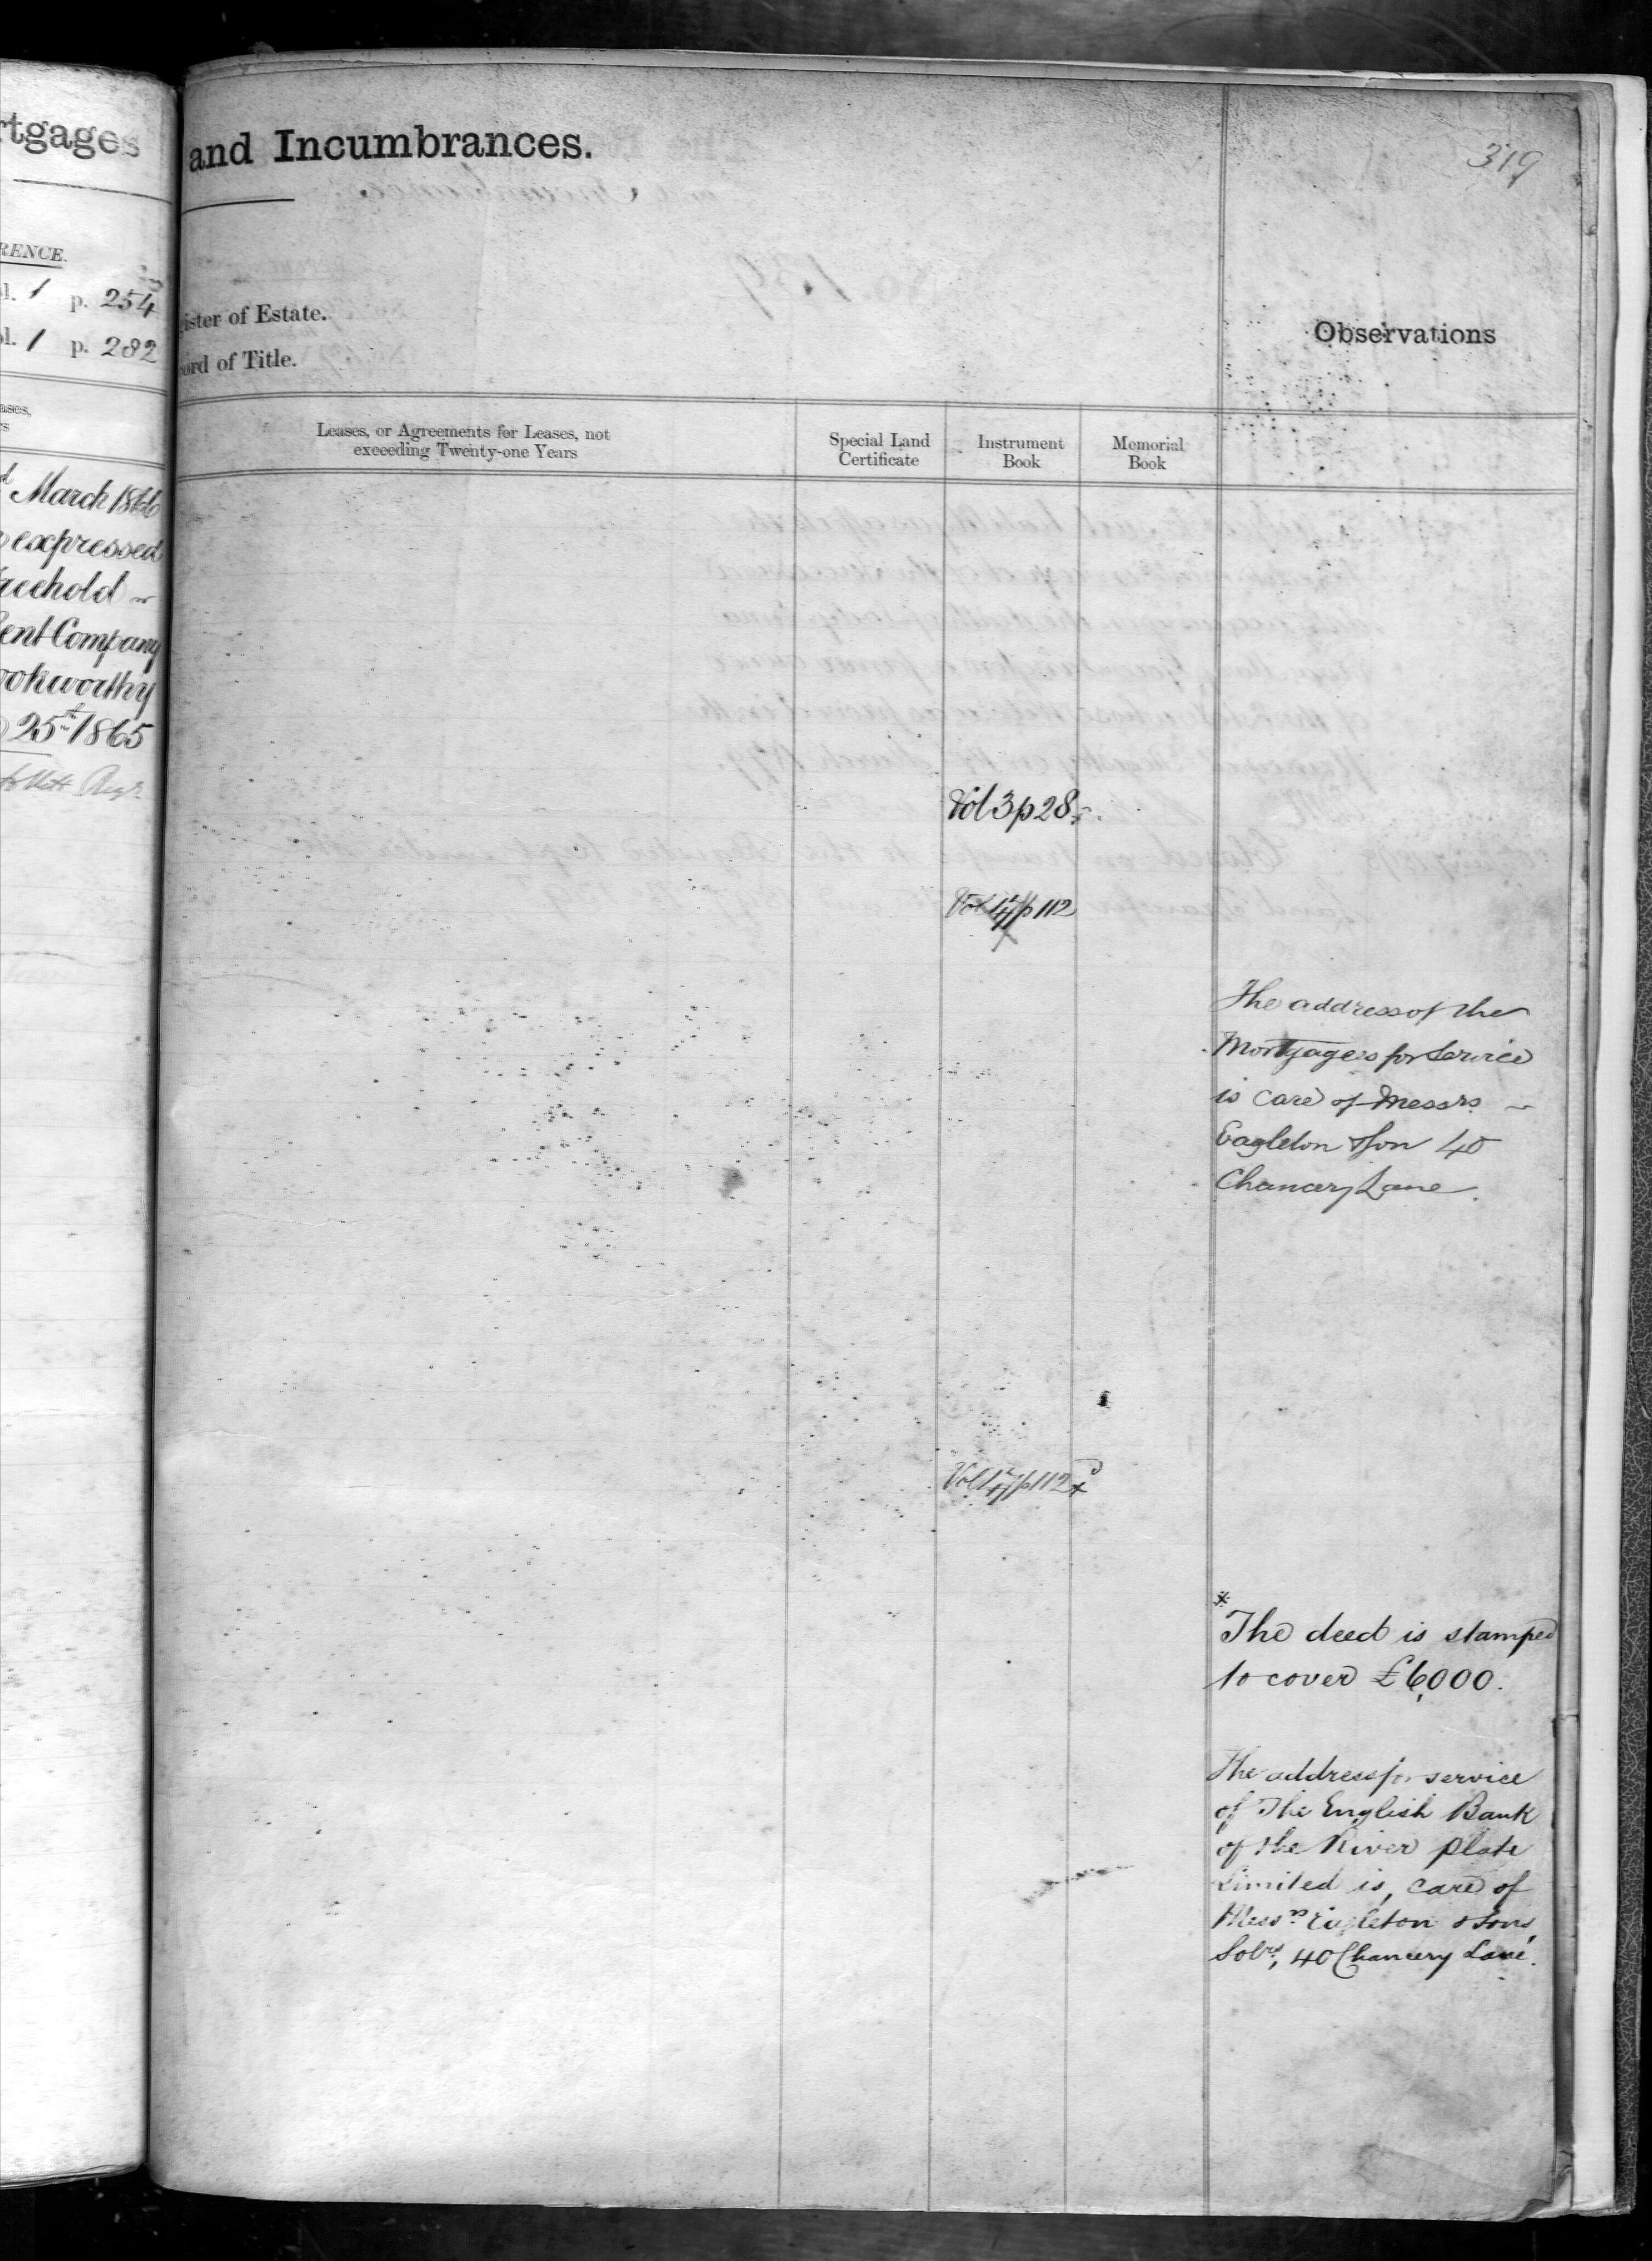 rtgages
RENCE.
l. 1 p. 254
ol. 1 p. 282
ases,
rs
d March 1866
expressed
reehold
ent Company
ookworthy
25th 1865
and Incumbrances.
319
ister of Estate.
ord of Title.
Observations
Leases, or Agreements for Leases, not
exceeding Twenty-one Years
Special Land
Certificate
Instrument
Book
Memorial
Book
Vol 3 p 28
p 112
The address of the
Mortgagees for Service
is care of Messrs
Eagleton & Son 40
Chancery Lane.
p 112 x
x
The deed is stamped
to cover £6,000.
The address for service
of The English Bank
of the River Plate
Limited is, care of
Messrs Eagleton & Sons,
Solrs, 40 Chancery Lane.